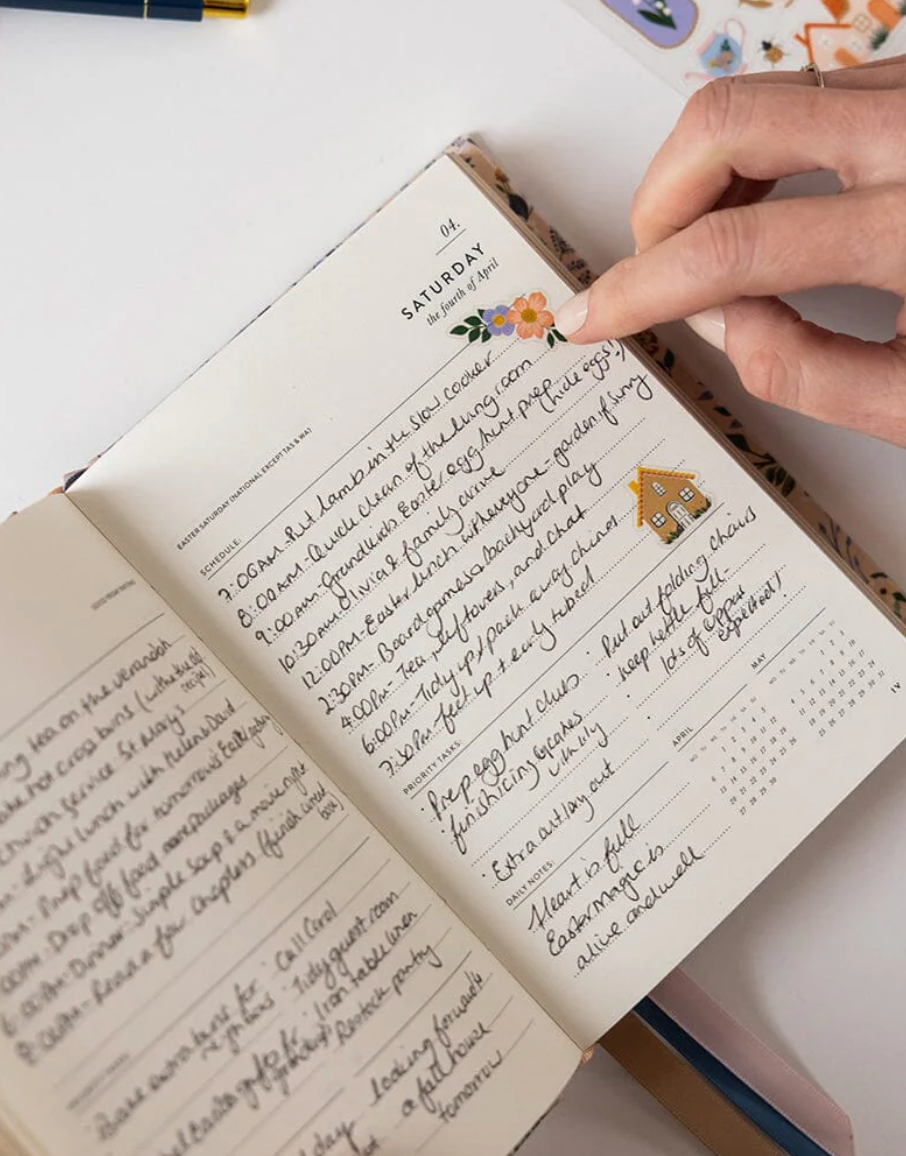 ng tea on the verandah
hot cross buns (with
recipe)
church service St Marys
light lunch with Helen & Dad
Prep food for tomorrow's
Drop off food
Dinner - simple soup & a movie night
8:00PM - Read a few chapters (finish
Bake extra buns for
neighbours
Call Carol
Tidy guest room
Iron table linen
Restock pantry
looking forward
a full house
tomorrow
04.
SATURDAY
the fourth of April
EASTER SATURDAY (NATIONAL EXCEPT TAS & WA)
SCHEDULE:
7:00AM - Put lamb in the slow cooker
8:00AM - Quick clean of the living room
9:00AM - Grandkids Easter egg hunt prep (hide eggs!)
10:30AM - Olivia & family arrive
12:00PM - Easter lunch with everyone - garden if sunny
2:30PM - Board games & backyard play
4:00PM - Tea, leftovers, and chat
6:00PM - Tidy up & pack away chairs
7:30PM - feet up & early to bed
PRIORITY TASKS:
• Prep egg hunt clues
• finish icing cupcakes
with lily
• Extra cutlery out
• Put out folding chairs
• Keep kettle full -
lots of cuppas
expected!
DAILY NOTES:
Heart is full
Easter magic is
alive and well
APRIL
MAY